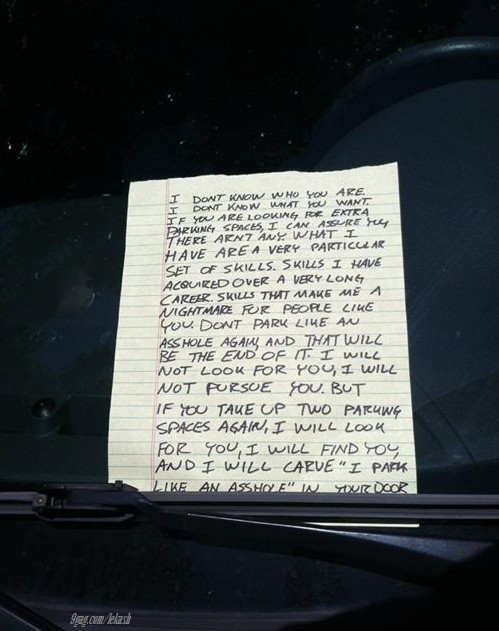 I DONT KNOW WHO YOU ARE.
I DONT KNOW WHAT YOU WANT.
IF YOU ARE LOOKING FOR EXTRA
PARKING SPACES, I CAN ASSURE YOU,
THERE ARNT ANY. WHAT I
HAVE ARE A VERY PARTICULAR
SET OF SKILLS. SKILLS I HAVE
ACQUIRED OVER A VERY LONG
CAREER. SKILLS THAT MAKE ME A
NIGHTMARE FOR PEOPLE LIKE
YOU. DONT PARK LIKE AN
ASSHOLE AGAIN, AND THAT WILL
BE THE END OF IT. I WILL
NOT LOOK FOR YOU, I WILL
NOT PURSUE YOU. BUT
IF YOU TAKE UP TWO PARKING
SPACES AGAIN, I WILL LOOK
FOR YOU, I WILL FIND YOU,
AND I WILL CARVE "I PARK
LIKE AN ASSHOLE" IN YOUR DOOR
9gag.com/lekash